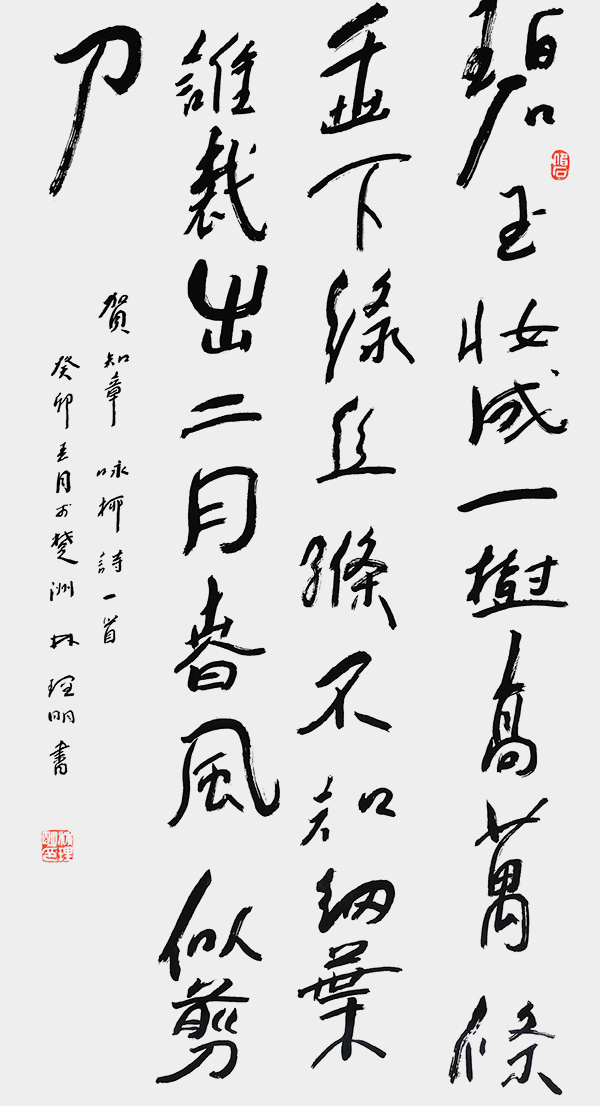 碧玉妆成一樹高萬條
垂下綠丝縧不知細葉
誰裁出二月春風似剪
刀
賀知章 咏柳詩一首
癸卯五月於楚洲 林理明書